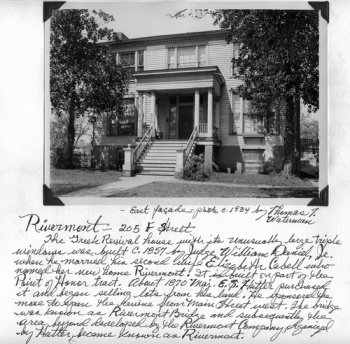 - East façade - photo c. 1934 by Thomas T.
Waterman
Rivermont - 205 F Street
The Greek Revival house with its unusually large triple
windows was built c. 1857 by Judge William Daniel, Jr.
when he married his second wife Elizabeth Cabell who
named her new home Rivermont. It is built on part of the
Point of Honor tract. About 1870 Maj. E.S. Hutter purchased
it and began selling lots from the land. He sponsored the
move to span the ravine from Main Street west. The bridge
was known as Rivermont Bridge and subsequently the
area beyond developed by the Rivermont Company organized
by Hutter became known as Rivermont.